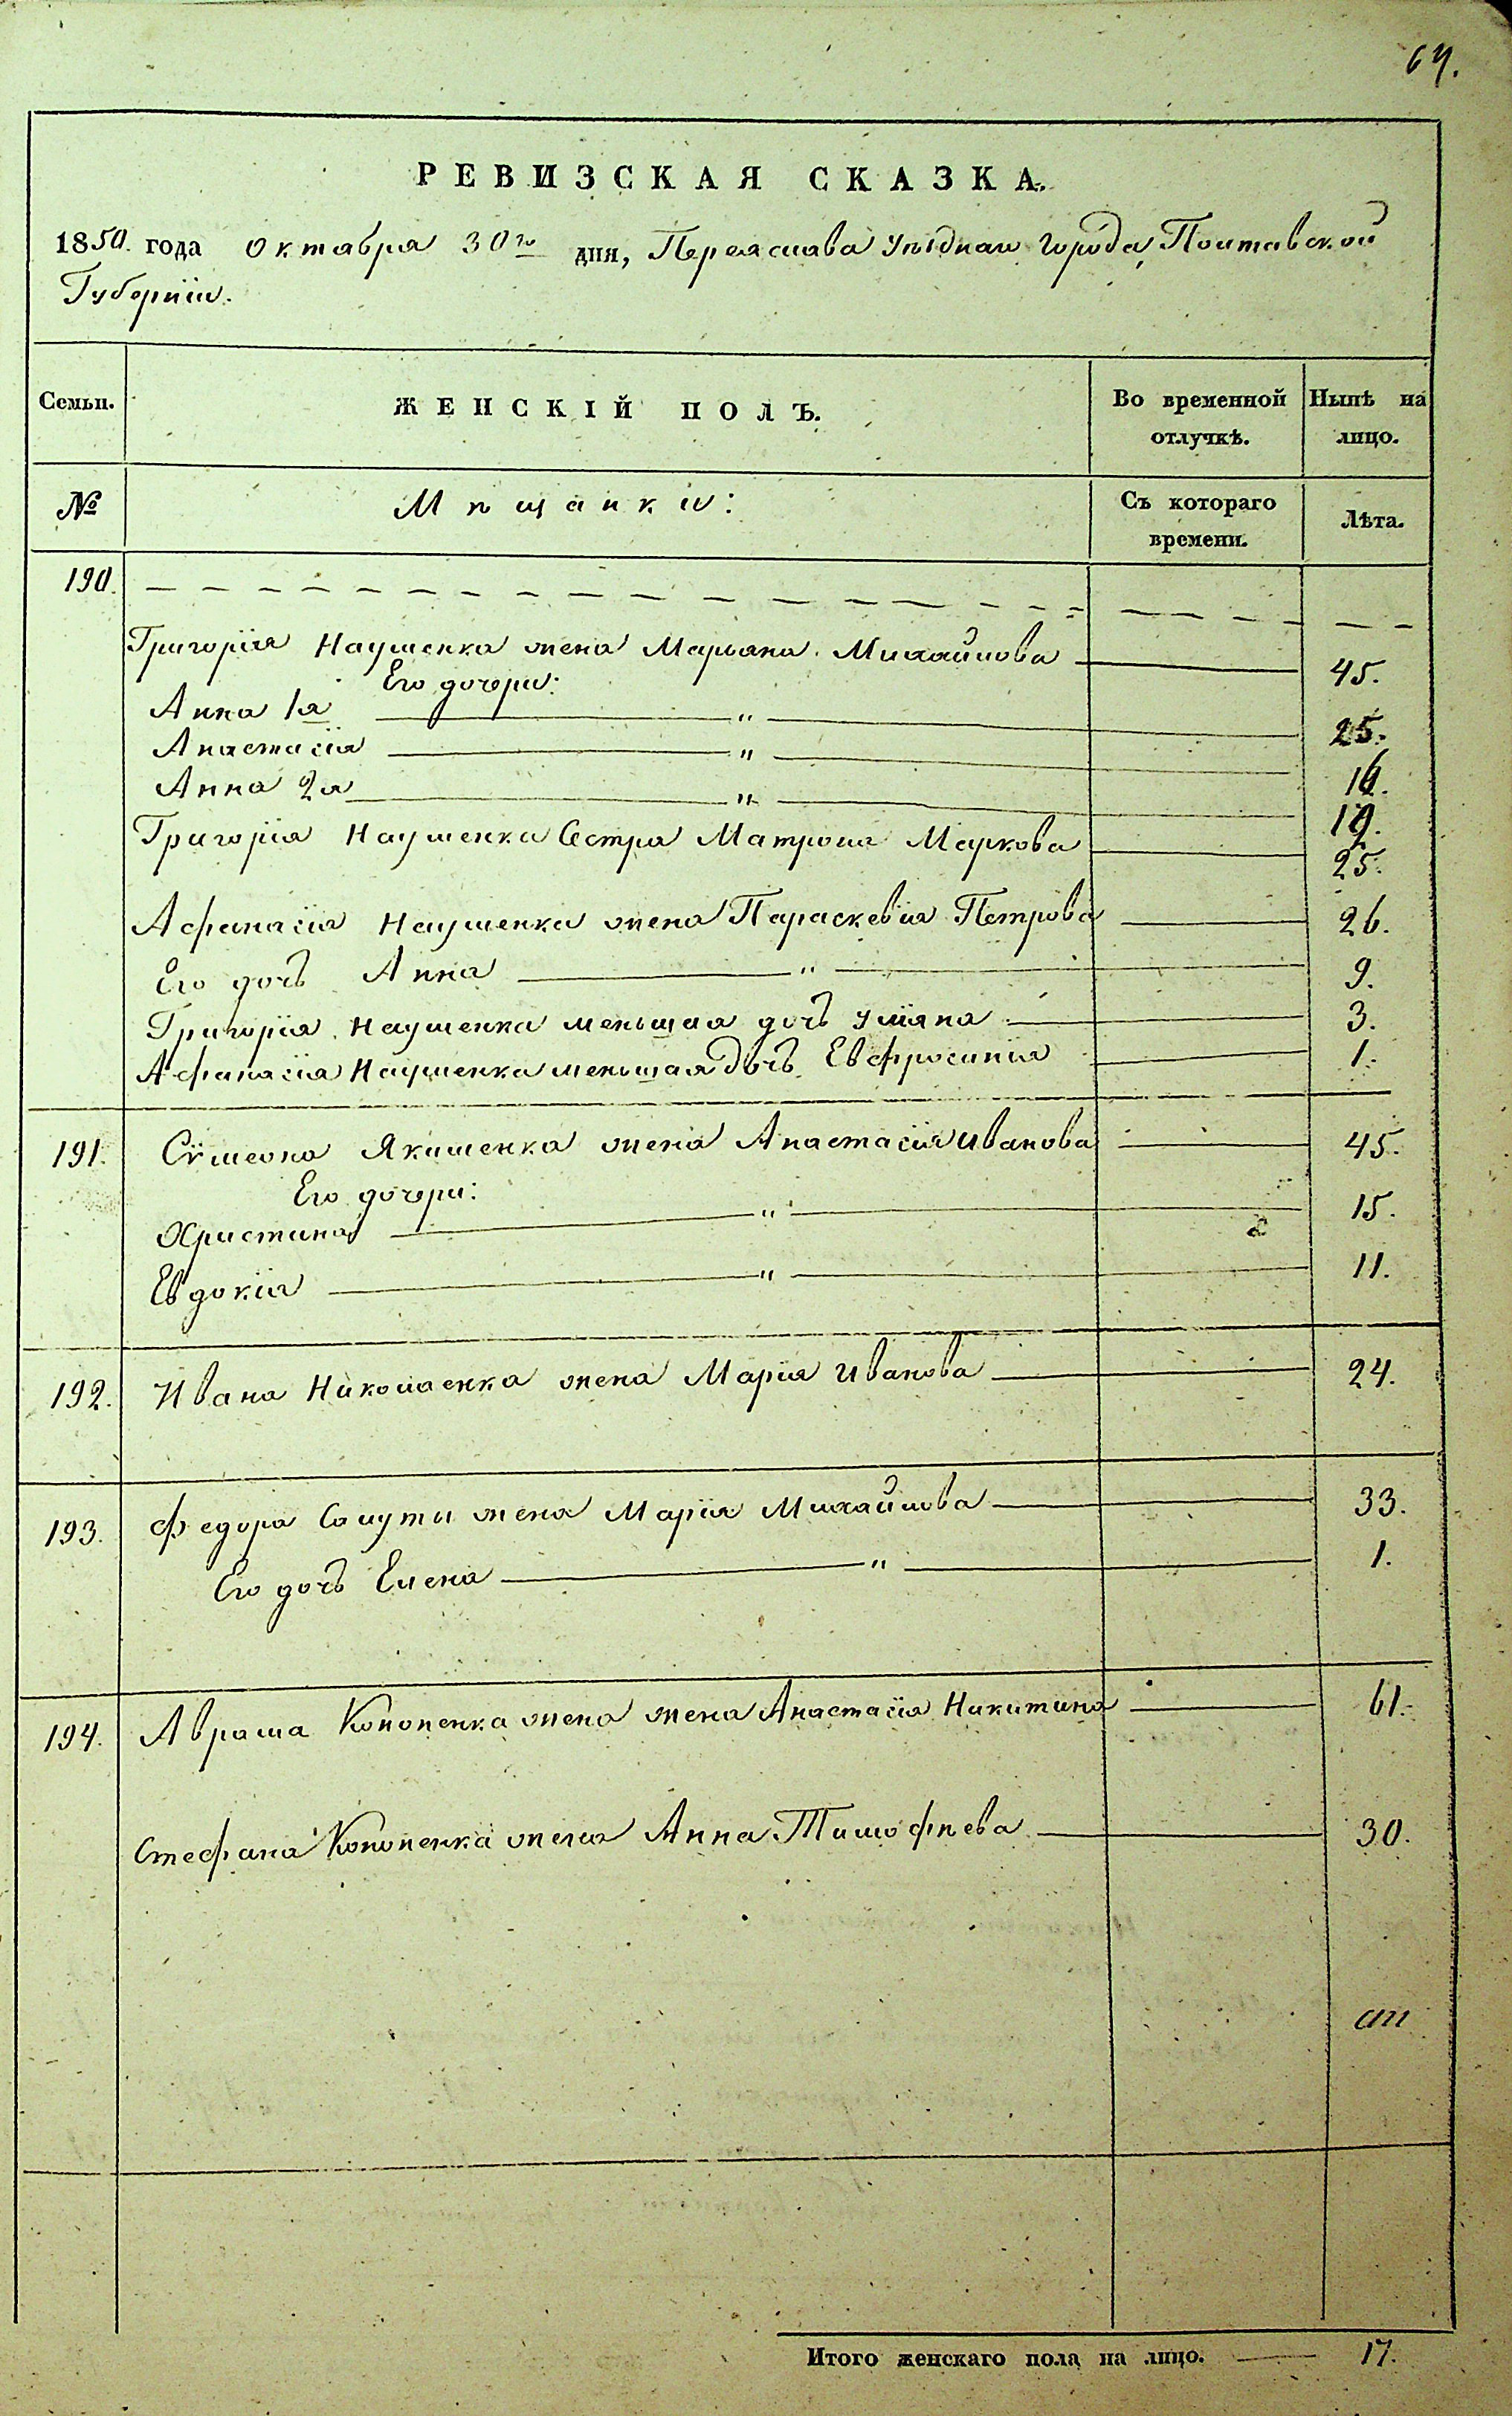 64.
РЕВИЗСКАЯ СКАЗКА.
1850. года Октября 30го дня, Переяслава Уѣзднаго Города, Полтавской
Губерніи.
Семьи. ЖЕНСКІЙ ПОЛЪ. Во временной отлучкѣ. Нынѣ на лицо.
№ Мѣщанки: Съ котораго времени. Лѣта.
190. — — — — — —
Григорія Наушенка жена Марьяна Михайлова — 45.
Его дочери:
Анна 1я — " — 25.
Анастасія — " — 16.
Анна 2я — " — 19.
Григорія Наушенка Сестра Матрона Маркова — 25.
Афанасія Наушенка жена Параскевія Петрова — 26.
Его дочь Анна — " — 9.
Григорія Наушенка меньшая дочь Уліяна — 3.
Афанасія Наушенка меньшая дочь Евфросинія — 1.
191. Сѵмеона Якименка жена Анастасія Иванова — 45.
Его дочери:
Христина — " — 15.
Евдокія — " — 11.
192. Ивана Николаенка жена Марія Иванова — 24.
193. Федора Солуты жена Марія Михайлова — 33.
Его дочь Елена — " — 1.
194. Аврама Кононенка жена жена Анастасія Никитина — 61.
Стефана Кононенка жена Анна Тимофѣева — 30.
Итого женскаго пола на лицо. — 17.